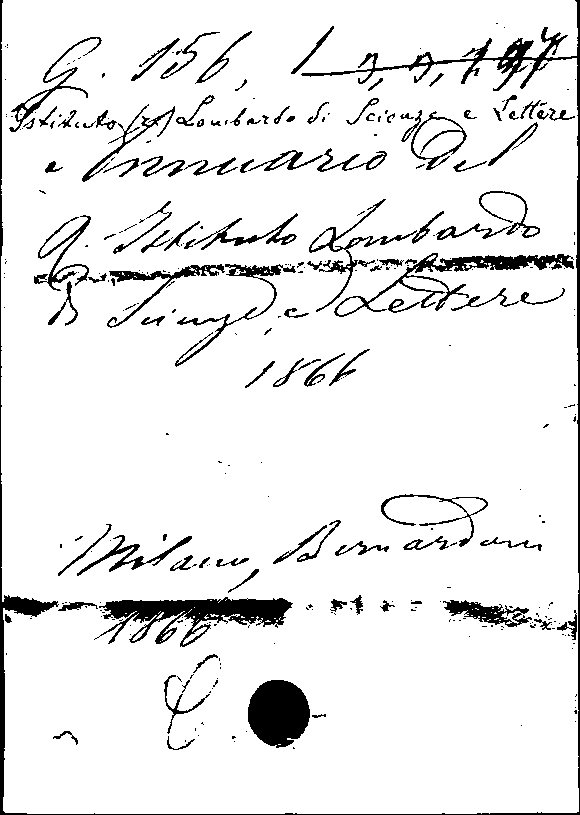 G. 156, 1
Istituto (R.) Lombardo di Scienze e Lettere
Annuario del
R. Istituto Lombardo
Di Scienze, e Lettere
1866
Milano, Bernardoni
1866
C